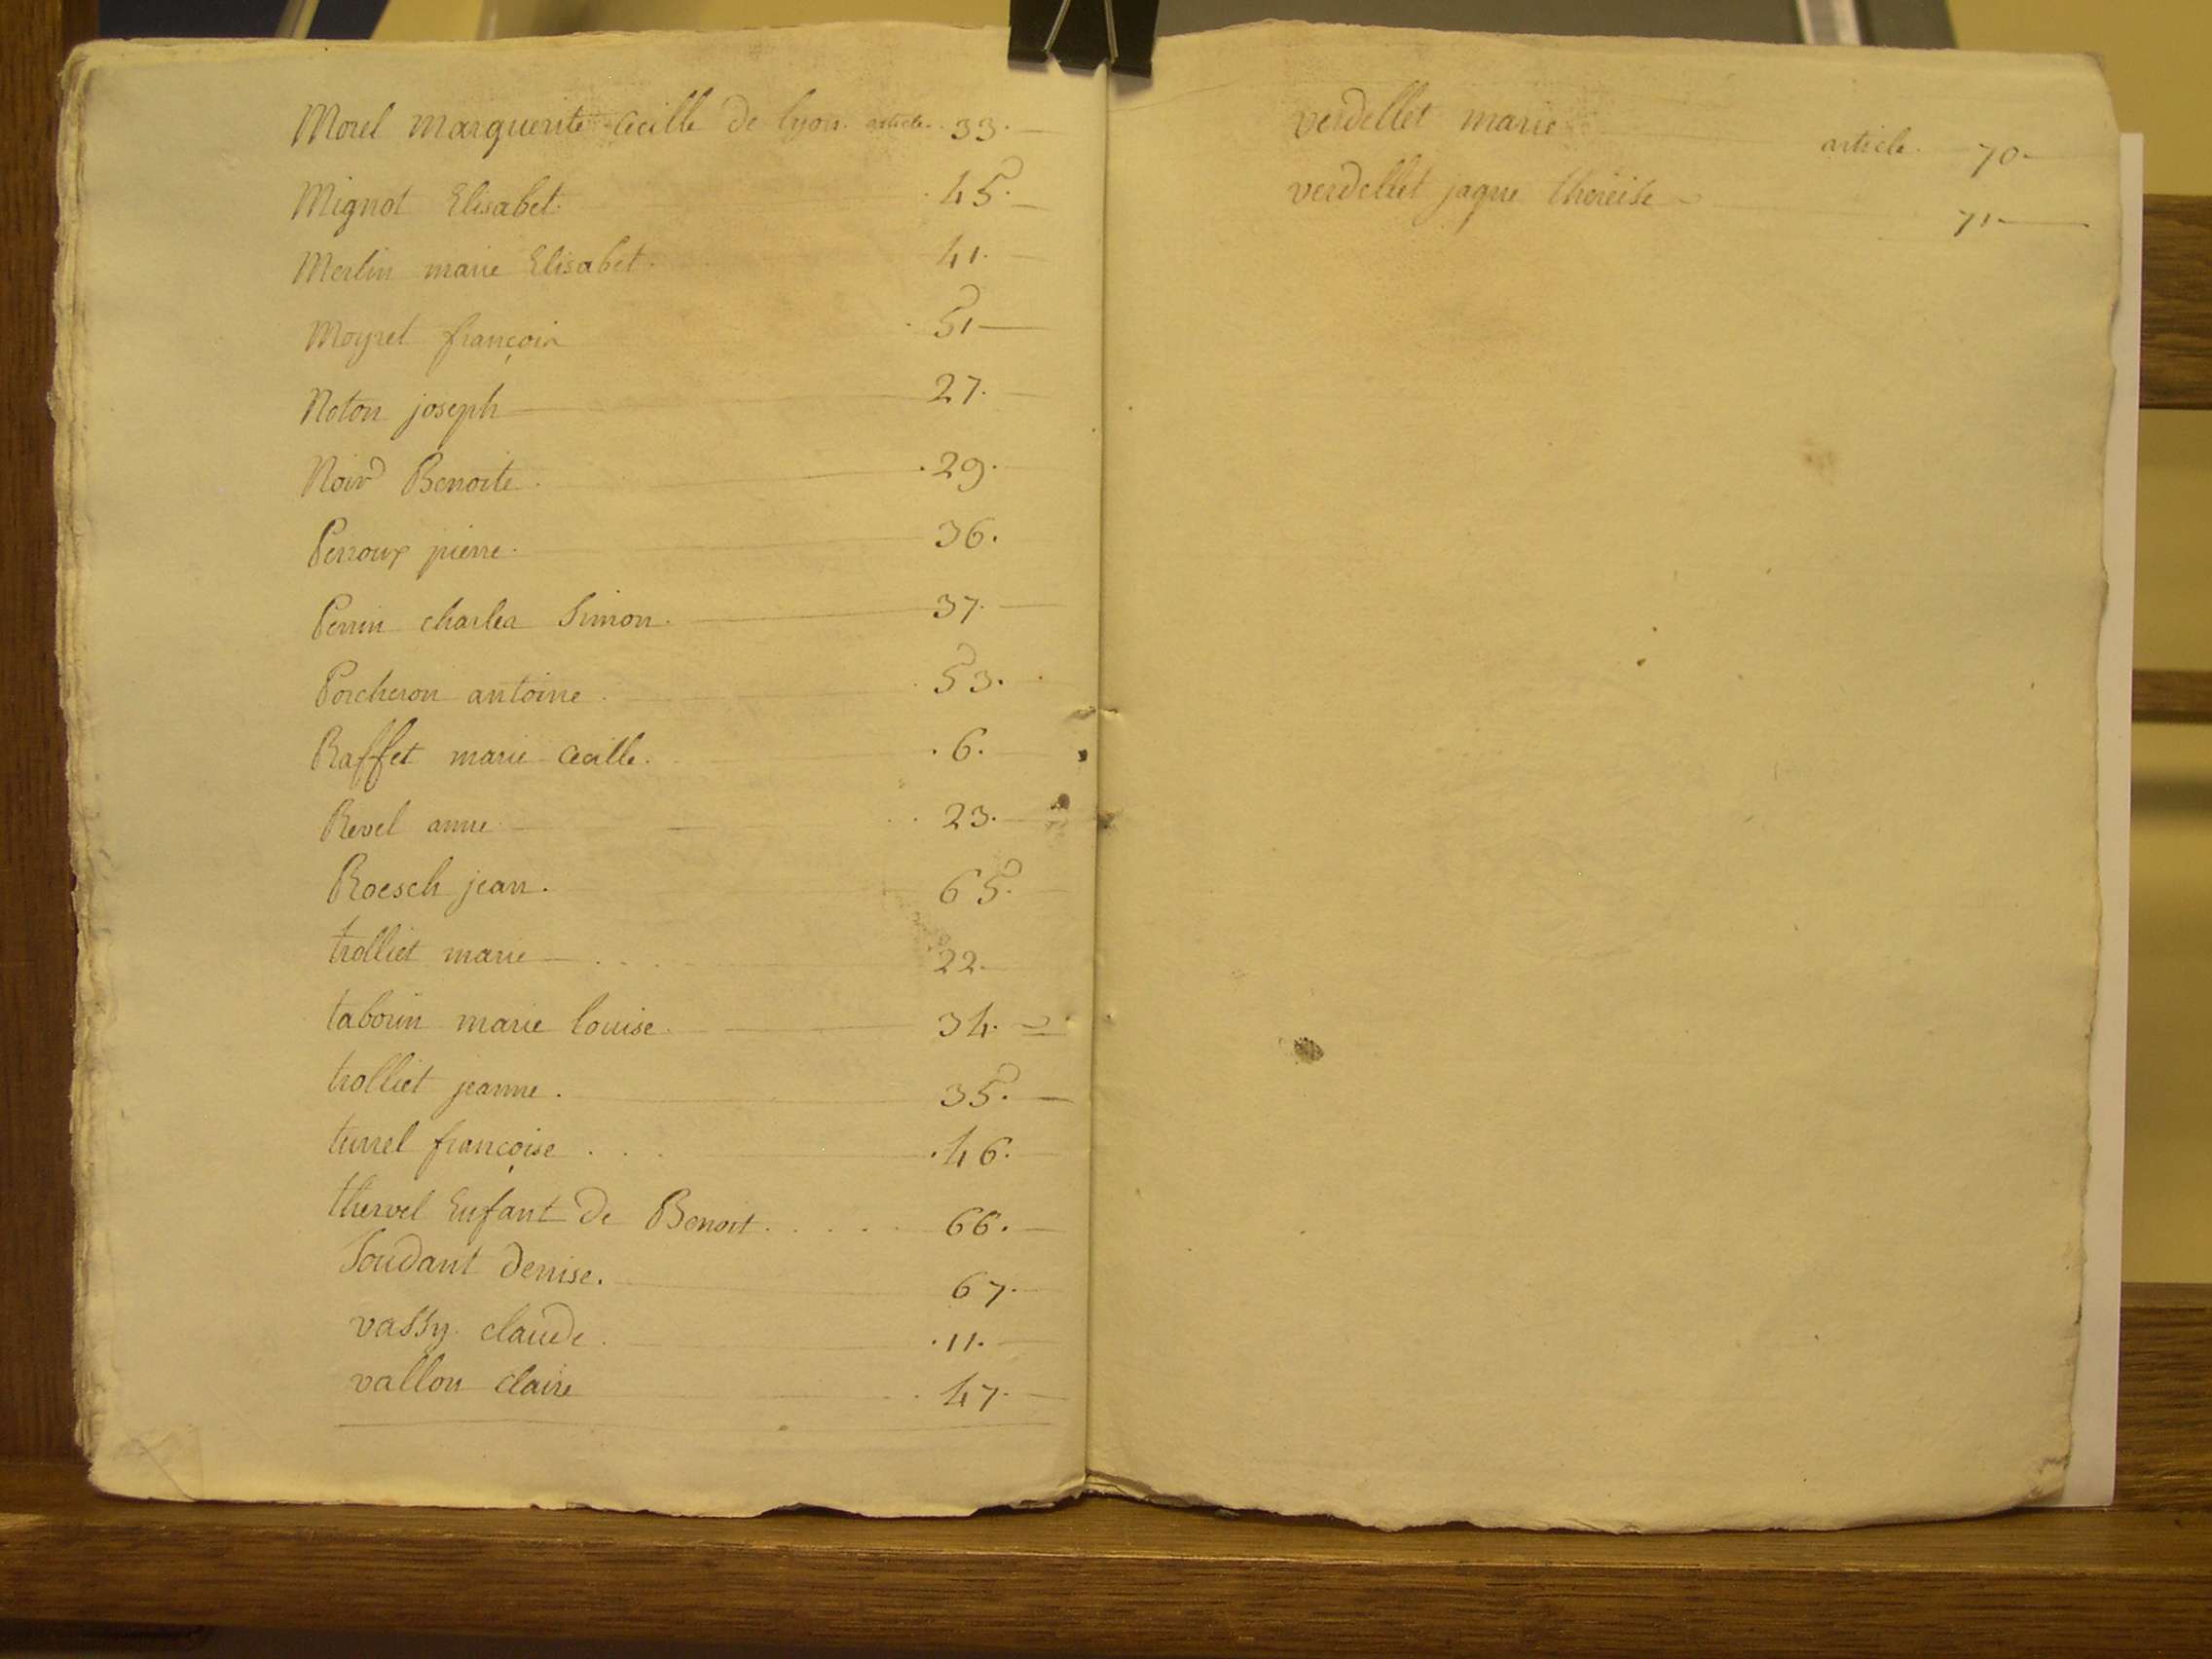 Morel marguerite Cecille de lyon. article. 33.
Mignot Elisabet. 45.
Merlin marie Elisabet. 41.
Moyret françois 51
Noton joseph 27.
Noird Benoite. 29.
Perroux pierre. 36.
Perrin charles Simon. 37.
Porcheron antoine. 53.
Raffet marie cecille. 6.
Revel anne. 23.
Roesch jean. 65.
trolliet marie 22.
tabouin marie louise. 34.
trolliet jeanne. 35.
turrel françoise 46.
thervel Enfant de Benoit. 66.
Soudant denise. 67.
vassy. claude. 11.
vallon claire 47.
verdellet marie article. 70.
verdellet jaque thereise 71.